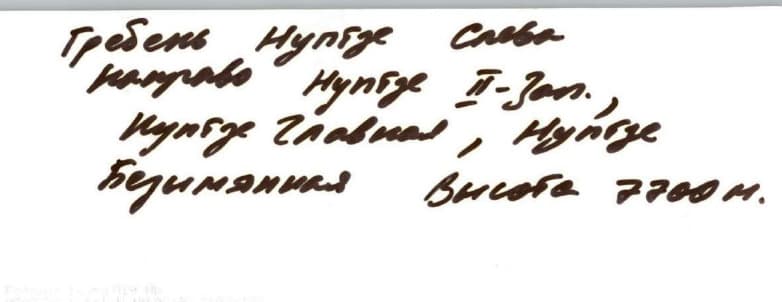 Гребень Нуптзе Слева
направо Нуптзе II-Зап.,
Нуптзе Главная, Нуптзе
Безимянная Высота 7700 м.